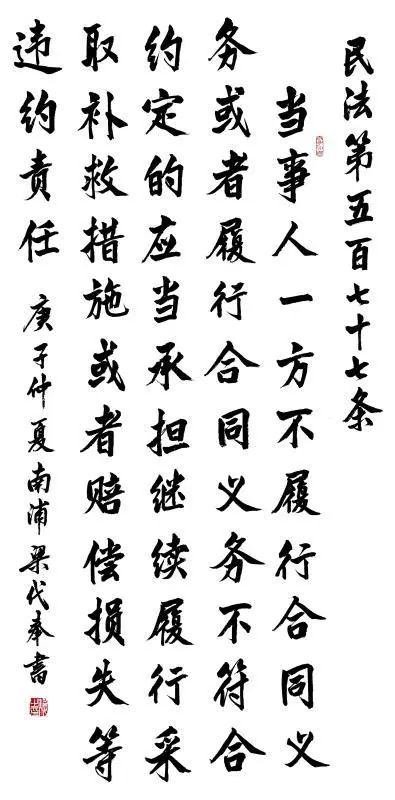 民法第五百七十七条
当事人一方不履行合同义
务或者履行合同义务不符合
约定的应当承担继续履行采
取补救措施或者赔偿损失等
违约责任
庚子仲夏南浦梁代奉书